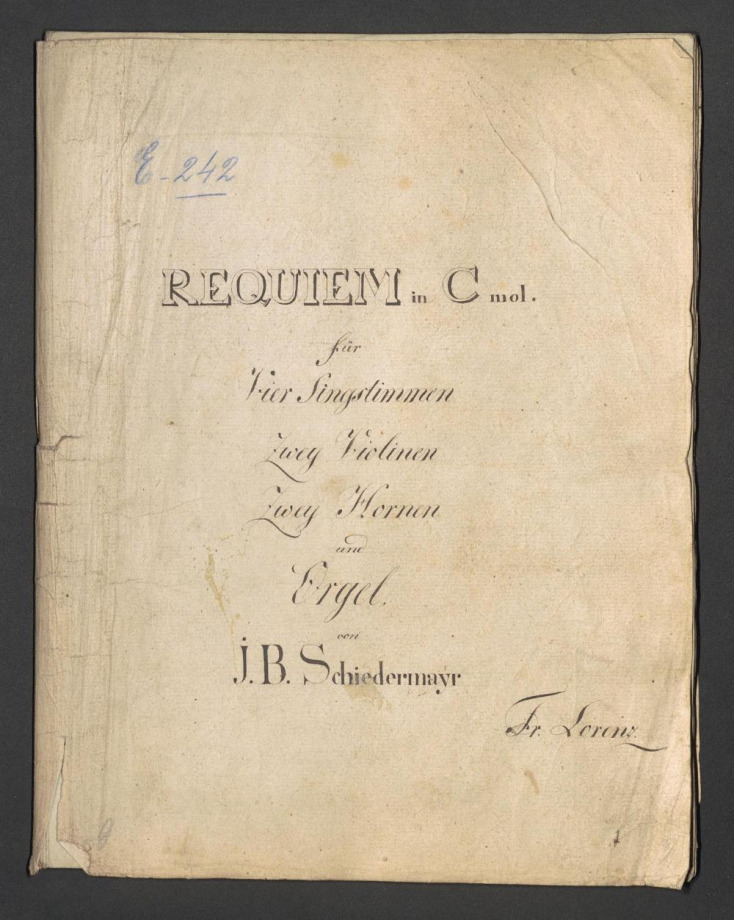 E-242
REQUIEM in C mol.
für
Vier Singstimmen
Zwey Violinen
Zwey Hornen
und
Orgel.
von
J. B. Schiedermayr
Fr. Lorenz.
1